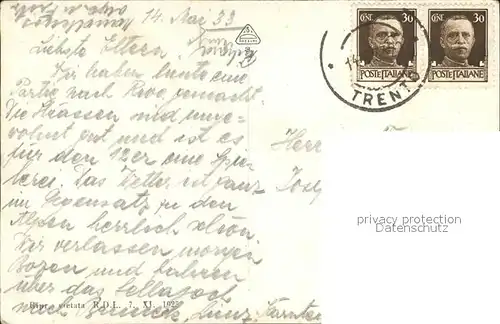 14. Mai 33
Liebste Eltern,
Wir haben heute eine
Partie nach Riva gemacht.
Die Strassen sind unge-
wohnt gut und ist es
für den 12er eine Spie-
lerei. Das Wetter ist ganz
im Gegensatz zu den
Alpen herrlich schön.
Wir verlassen morgen
Bozen und fahren
über das Sellajoch
nach Bruneck, Lienz, Kärnten
Ripr. vietata R.D.L. 7. XI. 1925
CENT. 30
POSTE ITALIANE
CENT. 30
POSTE ITALIANE
TRENTO
Herr
Josef
privacy protection
Datenschutz